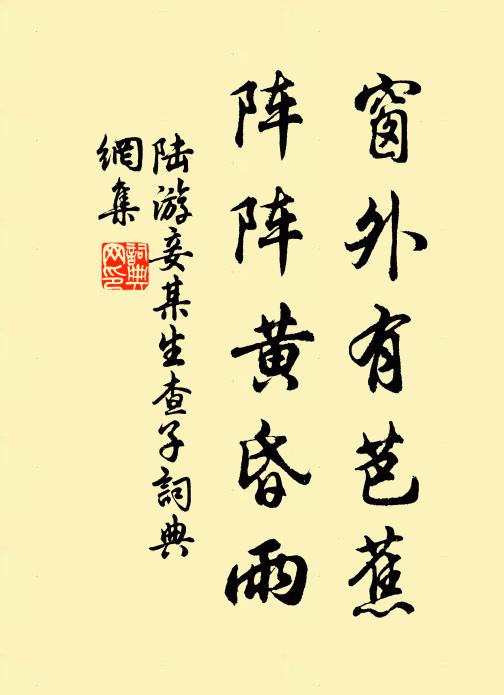 窗外有芭蕉
阵阵黄昏雨
陆游妾某生查子詞典
網集
詞典
网印